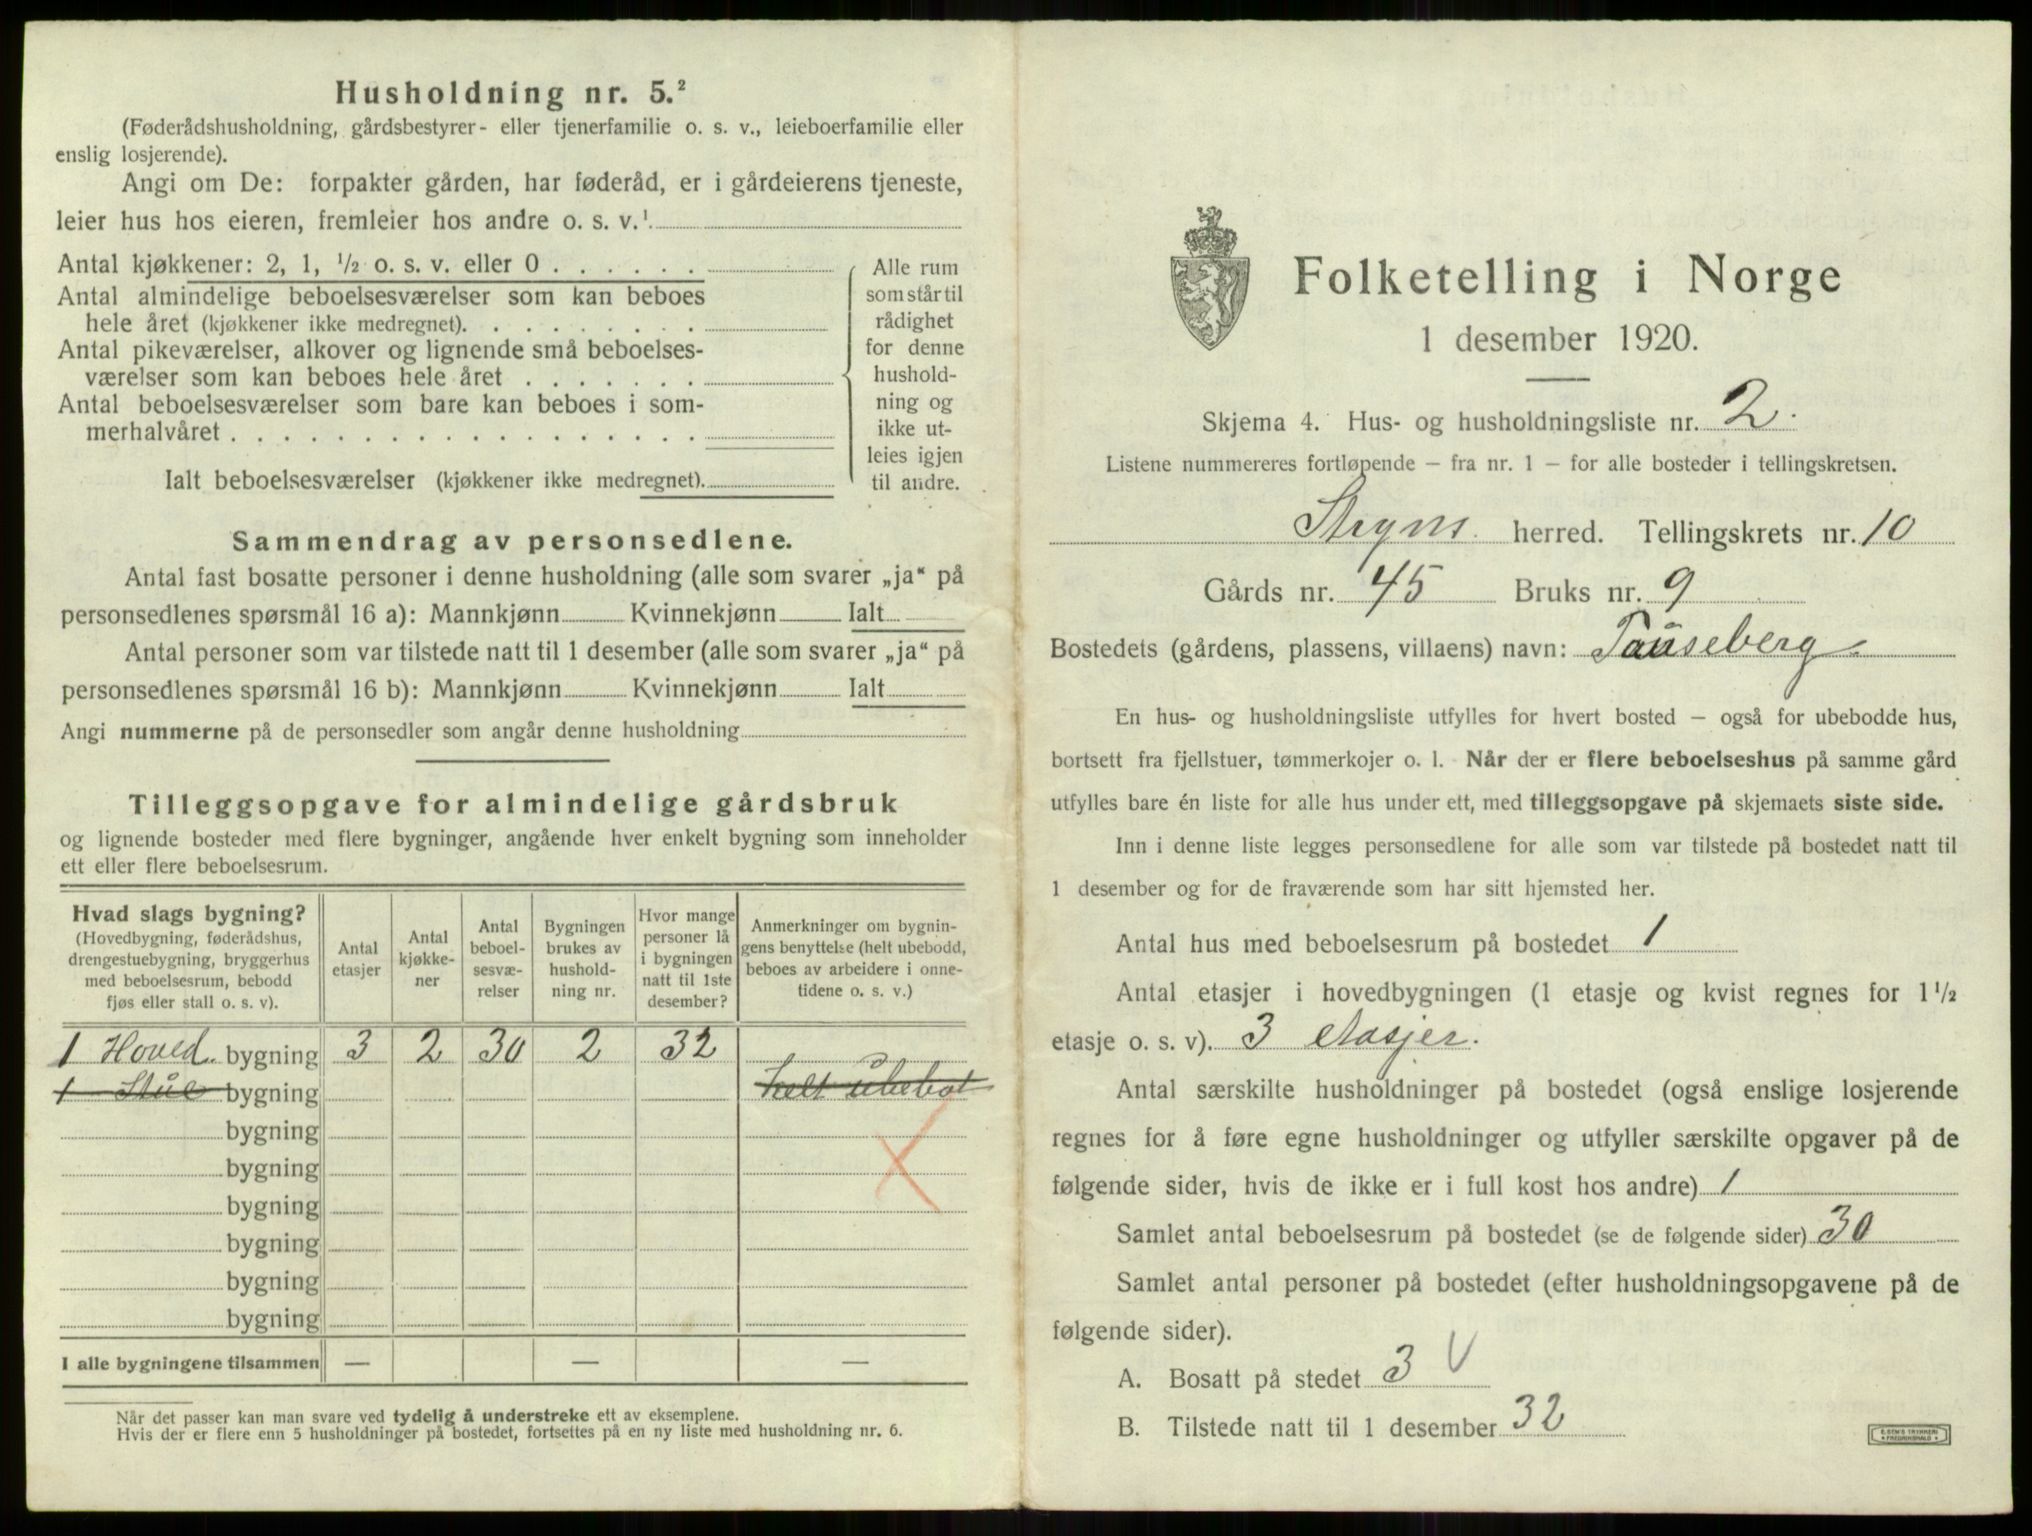 Husholdning nr. 5.²
(Føderådshusholdning, gårdsbestyrer- eller tjenerfamilie o. s. v., leieboerfamilie eller
enslig losjerende).
Angi om De: forpakter gården, har føderåd, er i gårdeierens tjeneste,
leier hus hos eieren, fremleier hos andre o. s. v.¹
Antal kjøkkener: 2, 1, ½ o. s. v. eller 0
Antal almindelige beboelsesværelser som kan beboes
hele året (kjøkkener ikke medregnet).
Antal pikeværelser, alkover og lignende små beboelses-
værelser som kan beboes hele året
Antal beboelsesværelser som bare kan beboes i som-
merhalvåret
Ialt beboelsesværelser (kjøkkener ikke medregnet).
Alle rum
som står til
rådighet
for denne
hushold-
ning og
ikke ut-
leies igjen
til andre.
Sammendrag av personsedlene.
Antal fast bosatte personer i denne husholdning (alle som svarer „ja“ på
personsedlenes spørsmål 16 a): Mannkjønn Kvinnekjønn Ialt
Antal personer som var tilstede natt til 1 desember (alle som svarer „ja“ på
personsedlenes spørsmål 16 b): Mannkjønn Kvinnekjønn Ialt
Angi nummerne på de personsedler som angår denne husholdning
Tilleggsopgave for almindelige gårdsbruk
og lignende bosteder med flere bygninger, angående hver enkelt bygning som inneholder
ett eller flere beboelsesrum.
Hvad slags bygning?
(Hovedbygning, føderådshus,
drengestuebygning, bryggerhus
med beboelsesrum, bebodd
fjøs eller stall o. s. v).
Antal
etasjer
Antal
kjøkke-
ner
Antal
beboel-
sesvæ-
relser
Bygningen
brukes av
hushold-
ning nr.
Hvor mange
personer lå
i bygningen
natt til 1ste
desember?
Anmerkninger om bygnin-
gens benyttelse (helt ubebodd,
beboes av arbeidere i onne-
tidene o. s. v.)
1 Hoved bygning 3 2 30 2 32
1 Stue bygning helt ubebot
bygning
bygning
bygning
bygning
bygning
bygning
I alle bygningene tilsammen — — —
Når det passer kan man svare ved tydelig å understreke ett av eksemplene.
Hvis der er flere enn 5 husholdninger på bostedet, fortsettes på en ny liste med husholdning nr. 6.
Folketelling i Norge
1 desember 1920.
Skjema 4. Hus- og husholdningsliste nr. 2.
Listene nummereres fortløpende – fra nr. 1 – for alle bosteder i tellingskretsen.
Stryns herred. Tellingskrets nr. 10
Gårds nr. 45 Bruks nr. 9
Bostedets (gårdens, plassens, villaens) navn: Pauseberg
En hus- og husholdningsliste utfylles for hvert bosted – også for ubebodde hus,
bortsett fra fjellstuer, tømmerkojer o. l. Når der er flere beboelseshus på samme gård
utfylles bare én liste for alle hus under ett, med tilleggsopgave på skjemaets siste side.
Inn i denne liste legges personsedlene for alle som var tilstede på bostedet natt til
1 desember og for de fraværende som har sitt hjemsted her.
Antal hus med beboelsesrum på bostedet 1
Antal etasjer i hovedbygningen (1 etasje og kvist regnes for 1½
etasje o. s. v). 3 etasjer.
Antal særskilte husholdninger på bostedet (også enslige losjerende
regnes for å føre egne husholdninger og utfyller særskilte opgaver på de
følgende sider, hvis de ikke er i full kost hos andre) 1
Samlet antal beboelsesrum på bostedet (se de følgende sider) 30
Samlet antal personer på bostedet (efter husholdningsopgavene på de
følgende sider).
A. Bosatt på stedet 3 V
B. Tilstede natt til 1 desember 32
E. SEM'S TRYKKERI
FREDRIKSHALD